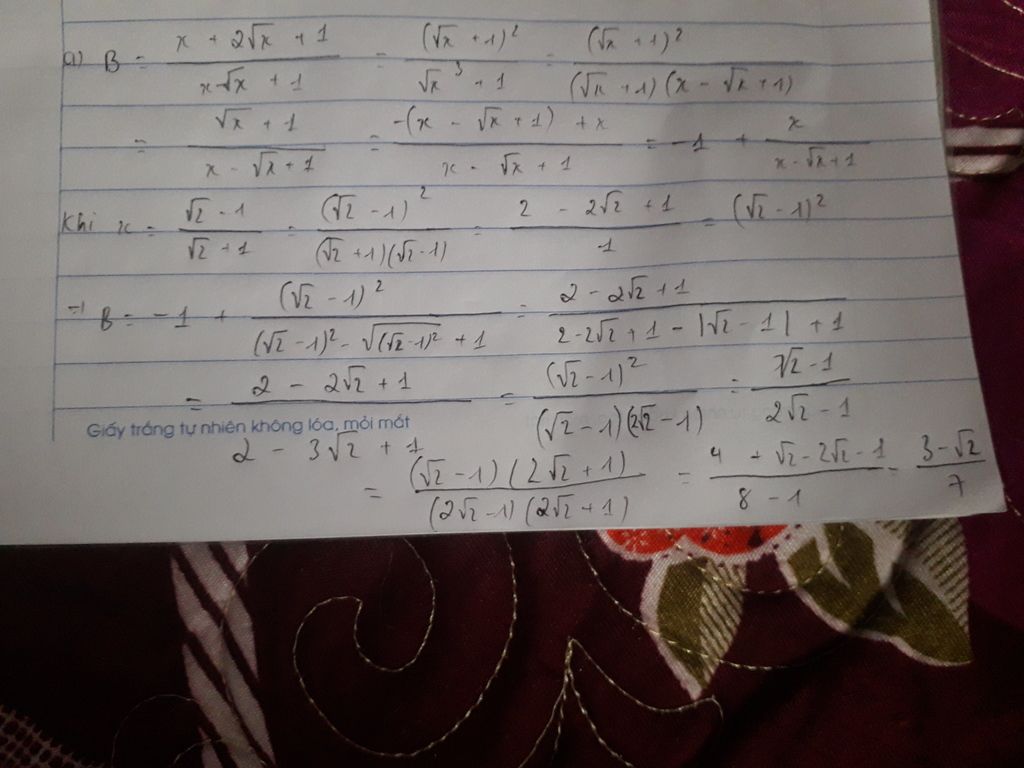 a) B = \frac{x + 2\sqrt{x} + 1}{x\sqrt{x} + 1} = \frac{(\sqrt{x} + 1)^2}{\sqrt{x}^3 + 1} = \frac{(\sqrt{x} + 1)^2}{(\sqrt{x} + 1)(x - \sqrt{x} + 1)}
= \frac{\sqrt{x} + 1}{x - \sqrt{x} + 1} = \frac{-(x - \sqrt{x} + 1) + x}{x - \sqrt{x} + 1} = -1 + \frac{x}{x - \sqrt{x} + 1}
Khi x = \frac{\sqrt{2} - 1}{\sqrt{2} + 1} = \frac{(\sqrt{2} - 1)^2}{(\sqrt{2} + 1)(\sqrt{2} - 1)} = \frac{2 - 2\sqrt{2} + 1}{1} = (\sqrt{2} - 1)^2
B = -1 + \frac{(\sqrt{2} - 1)^2}{(\sqrt{2} - 1)^2 - \sqrt{(\sqrt{2} - 1)^2} + 1} = \frac{2 - 2\sqrt{2} + 1}{2 - 2\sqrt{2} + 1 - |\sqrt{2} - 1| + 1}
= \frac{2 - 2\sqrt{2} + 1}{2 - 3\sqrt{2} + 1} = \frac{(\sqrt{2} - 1)^2}{(\sqrt{2} - 1)(2\sqrt{2} - 1)} = \frac{\sqrt{2} - 1}{2\sqrt{2} - 1}
Giấy trắng tự nhiên không lóa, mỏi mắt
= \frac{(\sqrt{2} - 1)(2\sqrt{2} + 1)}{(2\sqrt{2} - 1)(2\sqrt{2} + 1)} = \frac{4 + \sqrt{2} - 2\sqrt{2} - 1}{8 - 1} = \frac{3 - \sqrt{2}}{7}